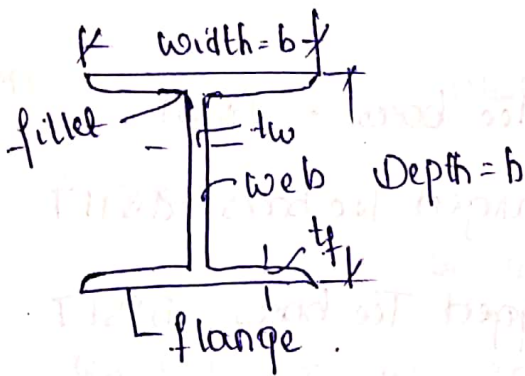 width = b
fillet
tw
web
Depth = b
tf
flange.